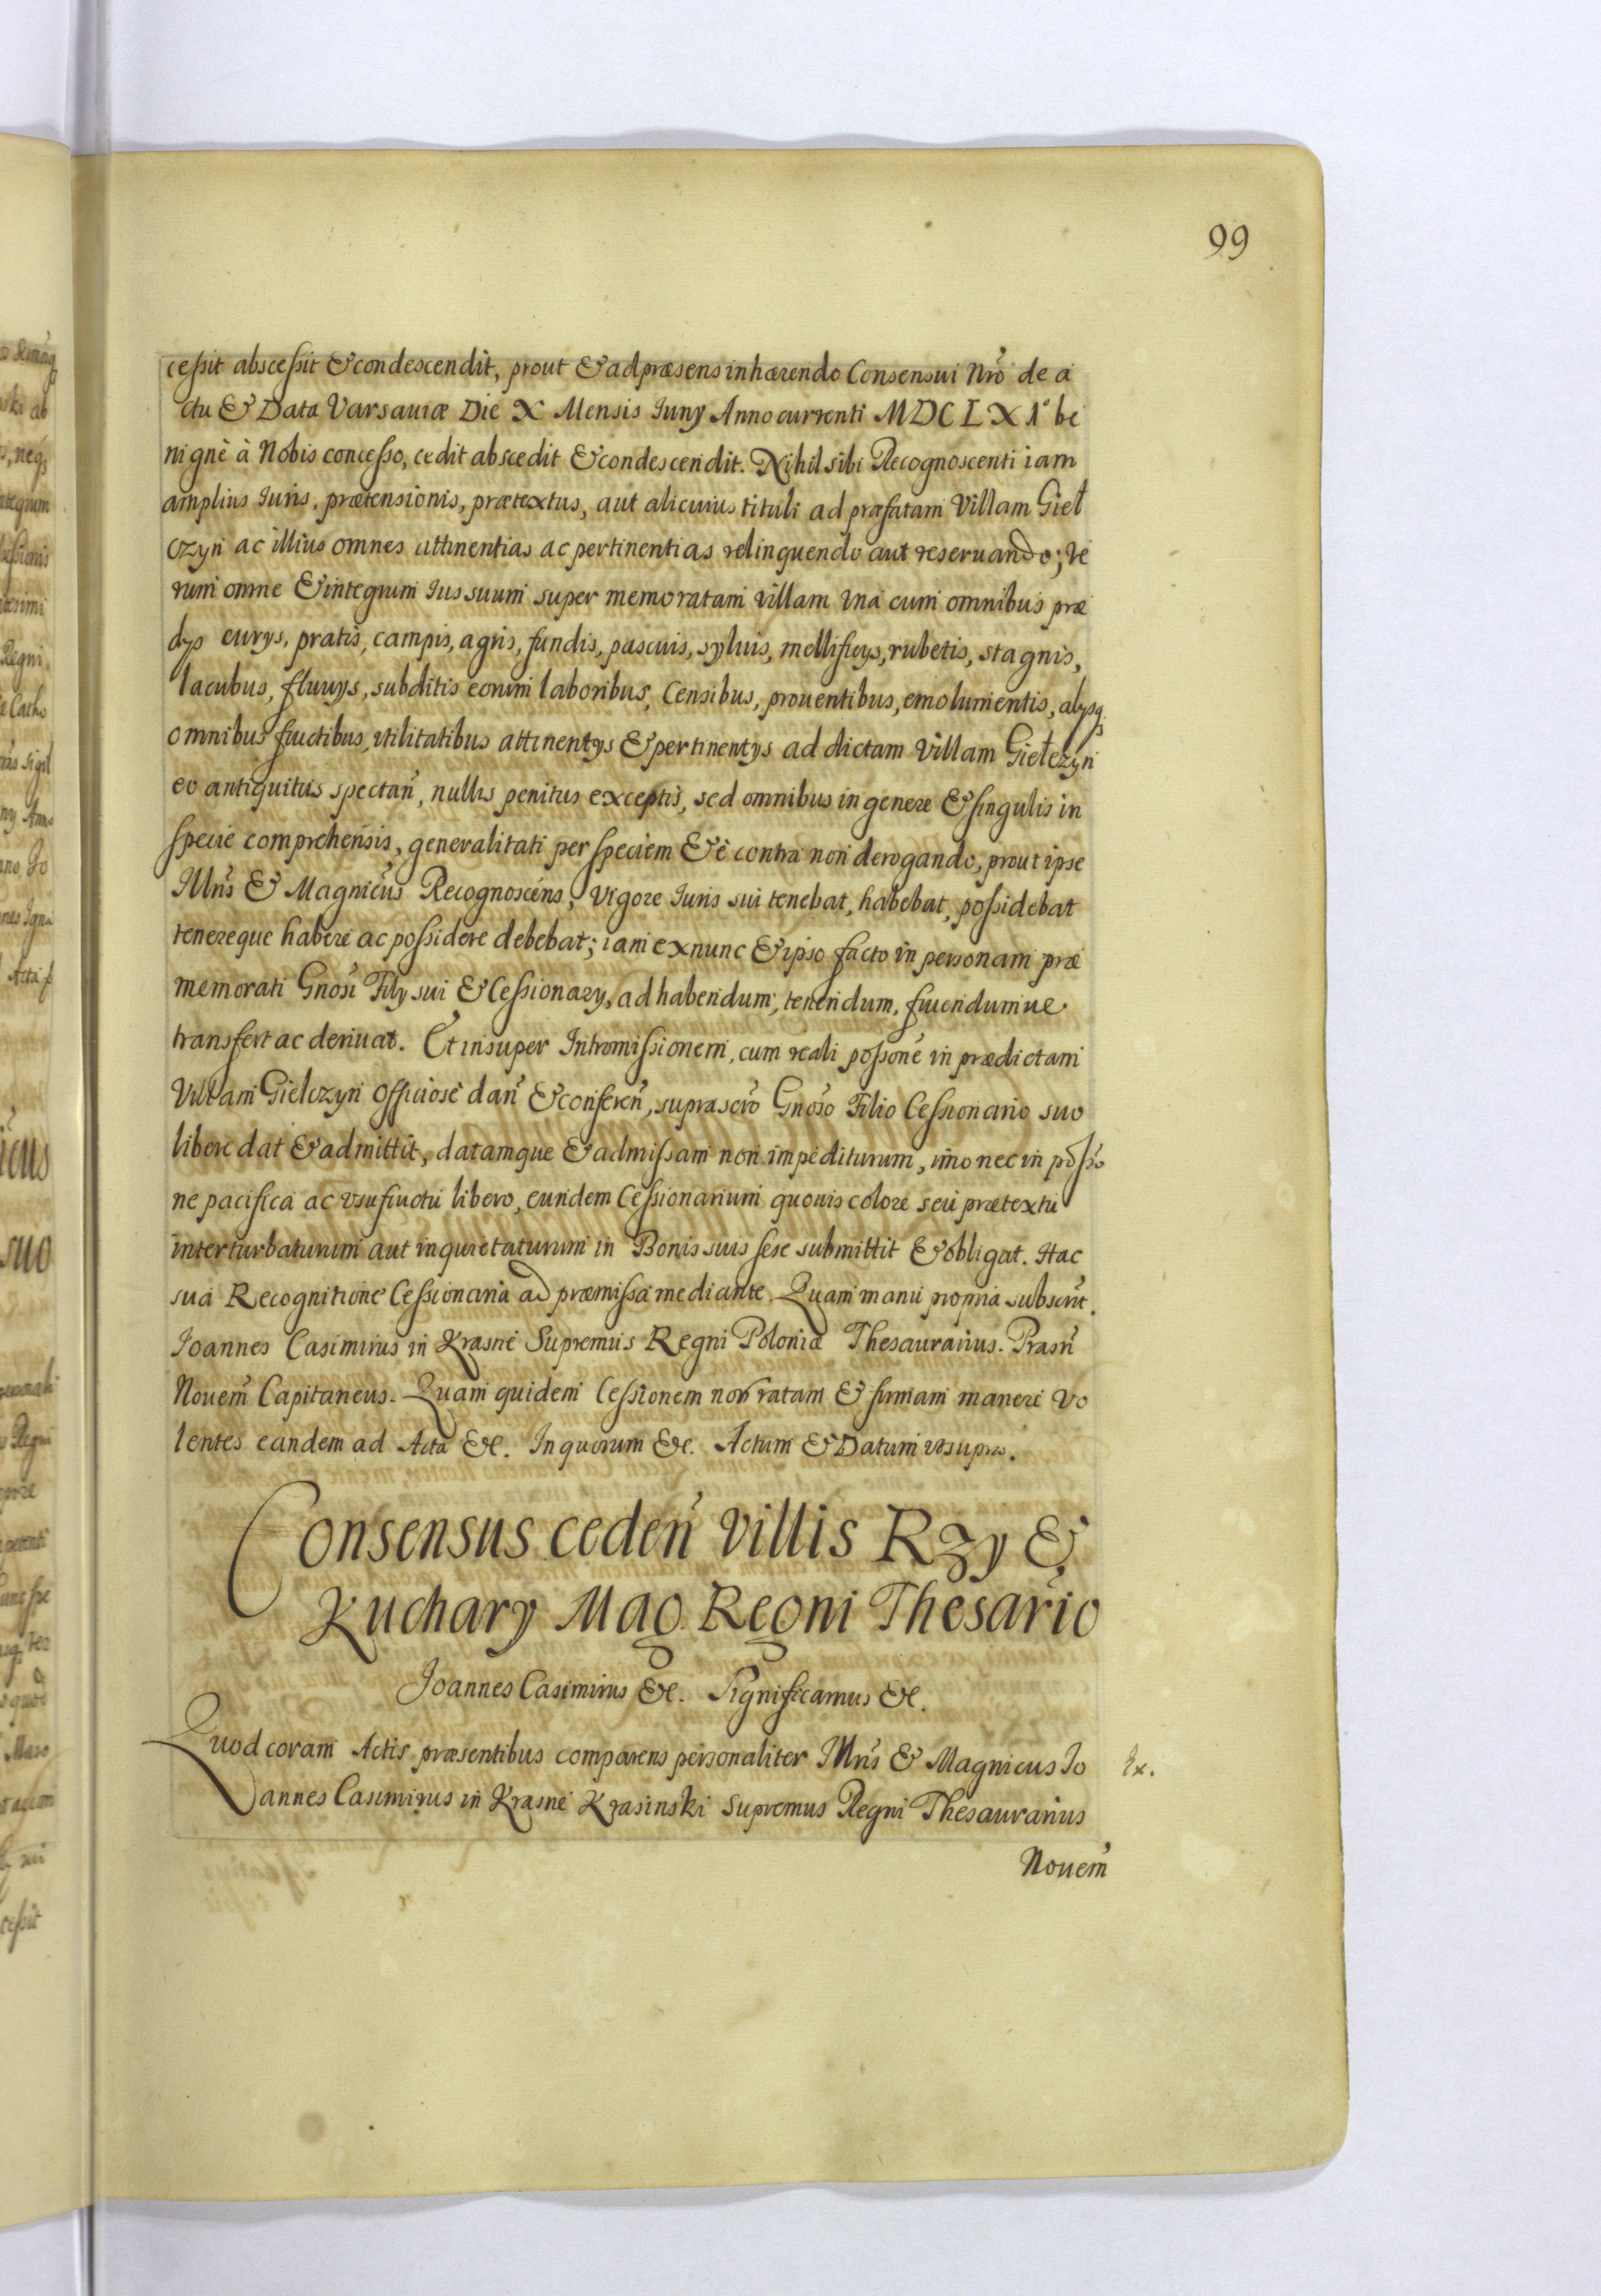 99
cessit abscessit & condescendit, prout & ad præsens inhærendo Consensui Nrō de a
ctu & Data Varsauiæ Die X Mensis Iuny Anno currenti MDCLX1° be
nignè à Nobis concesso, cedit abscedit & condescendit. Nihil sibi Recognoscenti iam
amplius Iuris, prætensionis, prætextus, aut alicuius tituli ad præfatam Villam Gieł
czyn ac illius omnes attinentias ac pertinentias relinquendo aut reseruando; Ve
rum omne & integrum Ius suum super memoratam villam vna cum omnibus præ
dys curys, pratis, campis, agris, fundis, pascuis, syluis, mellificys, rubetis, stagnis,
lacubus, fluuys, subditis eorum laboribus, Censibus, prouentibus, emolumentis, alysq
omnibus fructibus, vtilitatibus attinentys & pertinentys ad dictam Villam Giełczyn
eo antiquitus spectan̄, nullis penitus exceptis, sed omnibus in genere & singulis in
specie comprehensis, generalitati per speciem & è contra non derogando, prout ipse
Illrīs & Magnicūs Recognoscens, vigore Iuris sui tenebat, habebat, possidebat
tenereque habere ac possidere debebat; iam ex nunc & ipso facto in personam præ
memorati Gnosī Fily sui & Cessionary, ad habendum, tenendum, fruendumue
transfert ac deriuat. Et insuper Intromissionem, cum reali possonē in prædictam
Villam Giełczyn Officiosè dan̄ & conferen̄, suprascrō Gnosō Filio Cessionario suo
libere dat & admittit, datamque & admissam non impediturum, imo nec in posso
ne pacifica ac vsufructu libero, eundem Cessionarium quouis colore seu prætextu
interturbaturum aut inquietaturum in Bonis suis sese submittit & obligat. Hac
sua Recognitione Cessionaria ad præmissa mediante. Quam manu propria subscrīt.
Ioannes Casimirus in Krasne Supremus Regni Poloniæ Thesaurarius. Prasn̄
Nouem̄ Capitaneus. Quam quidem Cessionem nos ratam & firmam manere vo
lentes eandem ad Acta &c. In quorum &c. Actum & Datum vt supra.
Consensus ceden̄ villis Rzy &
Kuchary Mag. Regni Thesarīo
Joannes Casimirus &c. Significamus &c.
Quod coram Actis præsentibus comparens personaliter Illrīs & Magnicus Io
annes Casimirus in Krasne Krasinski Supremus Regni Thesaurarius
Ex.
Nouem̄